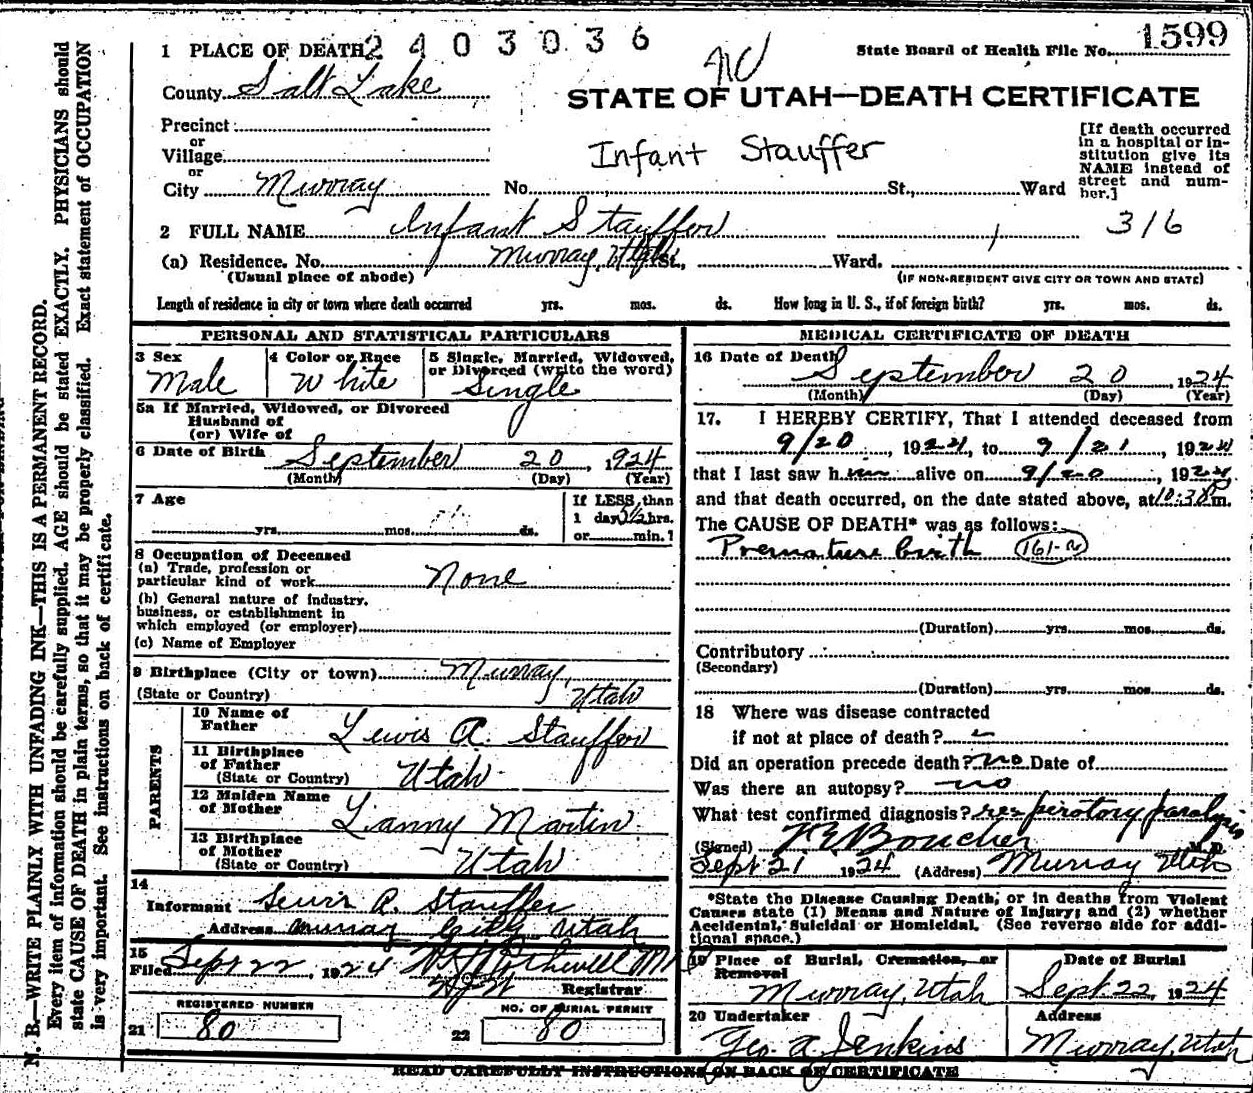 1 PLACE OF DEATH 2403036
State Board of Health File No. 1599
County Salt Lake
STATE OF UTAH—DEATH CERTIFICATE
Precinct
or
Village
or
City Murray No. St., Ward
Infant Stauffer
[If death occurred
in a hospital or in-
stitution give its
NAME instead of
street and num-
ber.]
2 FULL NAME Infant Stauffer
316
(a) Residence. No. Murray, Utah St., Ward.
(Usual place of abode)
(IF NON-RESIDENT GIVE CITY OR TOWN AND STATE)
Length of residence in city or town where death occurred yrs. mos. ds. How long in U. S., if of foreign birth? yrs. mos. ds.
PERSONAL AND STATISTICAL PARTICULARS
3 Sex
Male
4 Color or Race
White
5 Single, Married, Widowed,
or Divorced (write the word)
Single
5a If Married, Widowed, or Divorced
Husband of
(or) Wife of
6 Date of Birth September 20, 1924
(Month) (Day) (Year)
7 Age
yrs. mos. ds.
If LESS than
1 day 5½ hrs.
or min.?
8 Occupation of Deceased
(a) Trade, profession or
particular kind of work None
(b) General nature of industry,
business, or establishment in
which employed (or employer)
(c) Name of Employer
9 Birthplace (City or town) Murray,
(State or Country) Utah
PARENTS
10 Name of
Father Lewis A. Stauffer
11 Birthplace
of Father
(State or Country) Utah
12 Maiden Name
of Mother Fanny Martin
13 Birthplace
of Mother
(State or Country) Utah
14
Informant Lewis A. Stauffer
Address Murray City Utah
15
Filed Sept 22, 1924
Registrar
REGISTERED NUMBER
21 80
NO. OF BURIAL PERMIT
22 80
MEDICAL CERTIFICATE OF DEATH
16 Date of Death September 20, 1924
(Month) (Day) (Year)
17. I HEREBY CERTIFY, That I attended deceased from
9/20, 1924, to 9/21, 1924
that I last saw him alive on 9/20, 1924,
and that death occurred, on the date stated above, at 10:30 P m.
The CAUSE OF DEATH* was as follows:
Premature birth 161-a
(Duration) yrs. mos. ds.
Contributory
(Secondary)
(Duration) yrs. mos. ds.
18 Where was disease contracted
if not at place of death?
Did an operation precede death? no Date of
Was there an autopsy? no
What test confirmed diagnosis? respirotory paralysis
(Signed) Boucher M.D.
Sept 21 1924 (Address) Murray Utah
*State the Disease Causing Death, or in deaths from Violent
Causes state (1) Means and Nature of Injury; and (2) whether
Accidental, Suicidal or Homicidal. (See reverse side for addi-
tional space.)
19 Place of Burial, Cremation, or
Removal
Murray, Utah
Date of Burial
Sept. 22, 1924
20 Undertaker
Geo. A. Jenkins
Address
Murray, Utah
READ CAREFULLY INSTRUCTIONS ON BACK OF CERTIFICATE
N. B.—WRITE PLAINLY WITH UNFADING INK—THIS IS A PERMANENT RECORD.
Every item of information should be carefully supplied. AGE should be stated EXACTLY. PHYSICIANS should
state CAUSE OF DEATH in plain terms, so that it may be properly classified. Exact statement of OCCUPATION
is very important. See instructions on back of certificate.